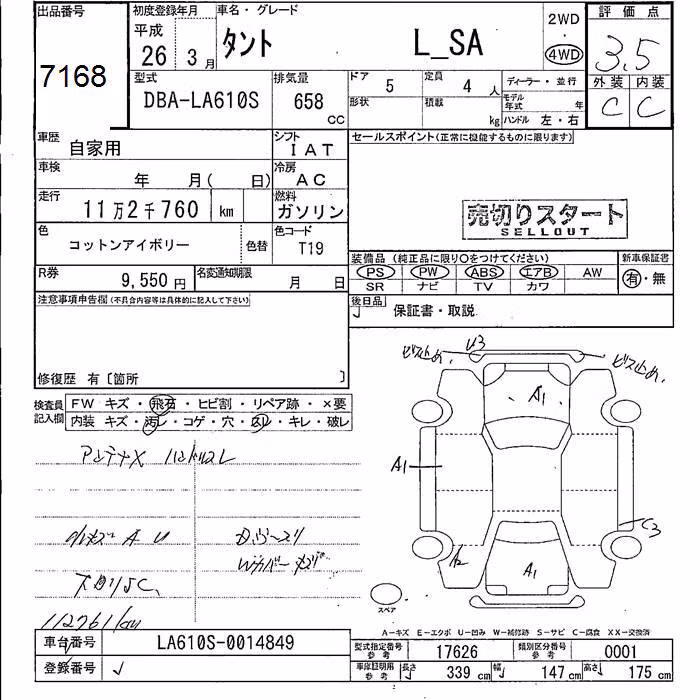 出品番号 初度登録年月 車名・グレード 2WD 評価点
7168 平成 26年 3月 タント L_SA 4WD 3.5
型式 排気量 ドア 5 定員 4人 ディーラー・並行 外装 内装
DBA-LA610S 658cc 形状 積載 kg モデル年式 年 ハンドル 左・右 C C
車歴 自家用 シフト IAT セールスポイント(正常に機能するものに限ります)
車検 年 月( 日) 冷房 AC
走行 11万2千760 km 燃料 ガソリン
売切りスタート
SELLOUT
色 コットンアイボリー 色替 色コード T19
装備品(純正品に限り○をつけてください) 新車保証書
PS PW ABS エアB AW 有・無
SR ナビ TV カワ
R券 9,550円 名変通知期限 月 日
後日品 保証書・取説
注意事項申告欄(不具合内容等は具体的に記入して下さい)
修復歴 有〔箇所 〕
検査員記入欄 FW キズ・飛石・ヒビ割・リペア跡・×要
内装 キズ・汚レ・コゲ・穴・スレ・キレ・破レ
ビス止め U3 ビス止め
A1
A1
C3
A2
A1
スペア
アンテナX ハンドルスレ
下回りSC
112761km
A-キズ E-エクボ U-凹み W-補修跡 S-サビ C-腐食 XX-交換済
車台番号 LA610S-0014849 型式指定番号 参考 17626 類別区分番号 参考 0001
登録番号 車庫証明用 参考 長さ 339cm 幅 147cm 高さ 175cm